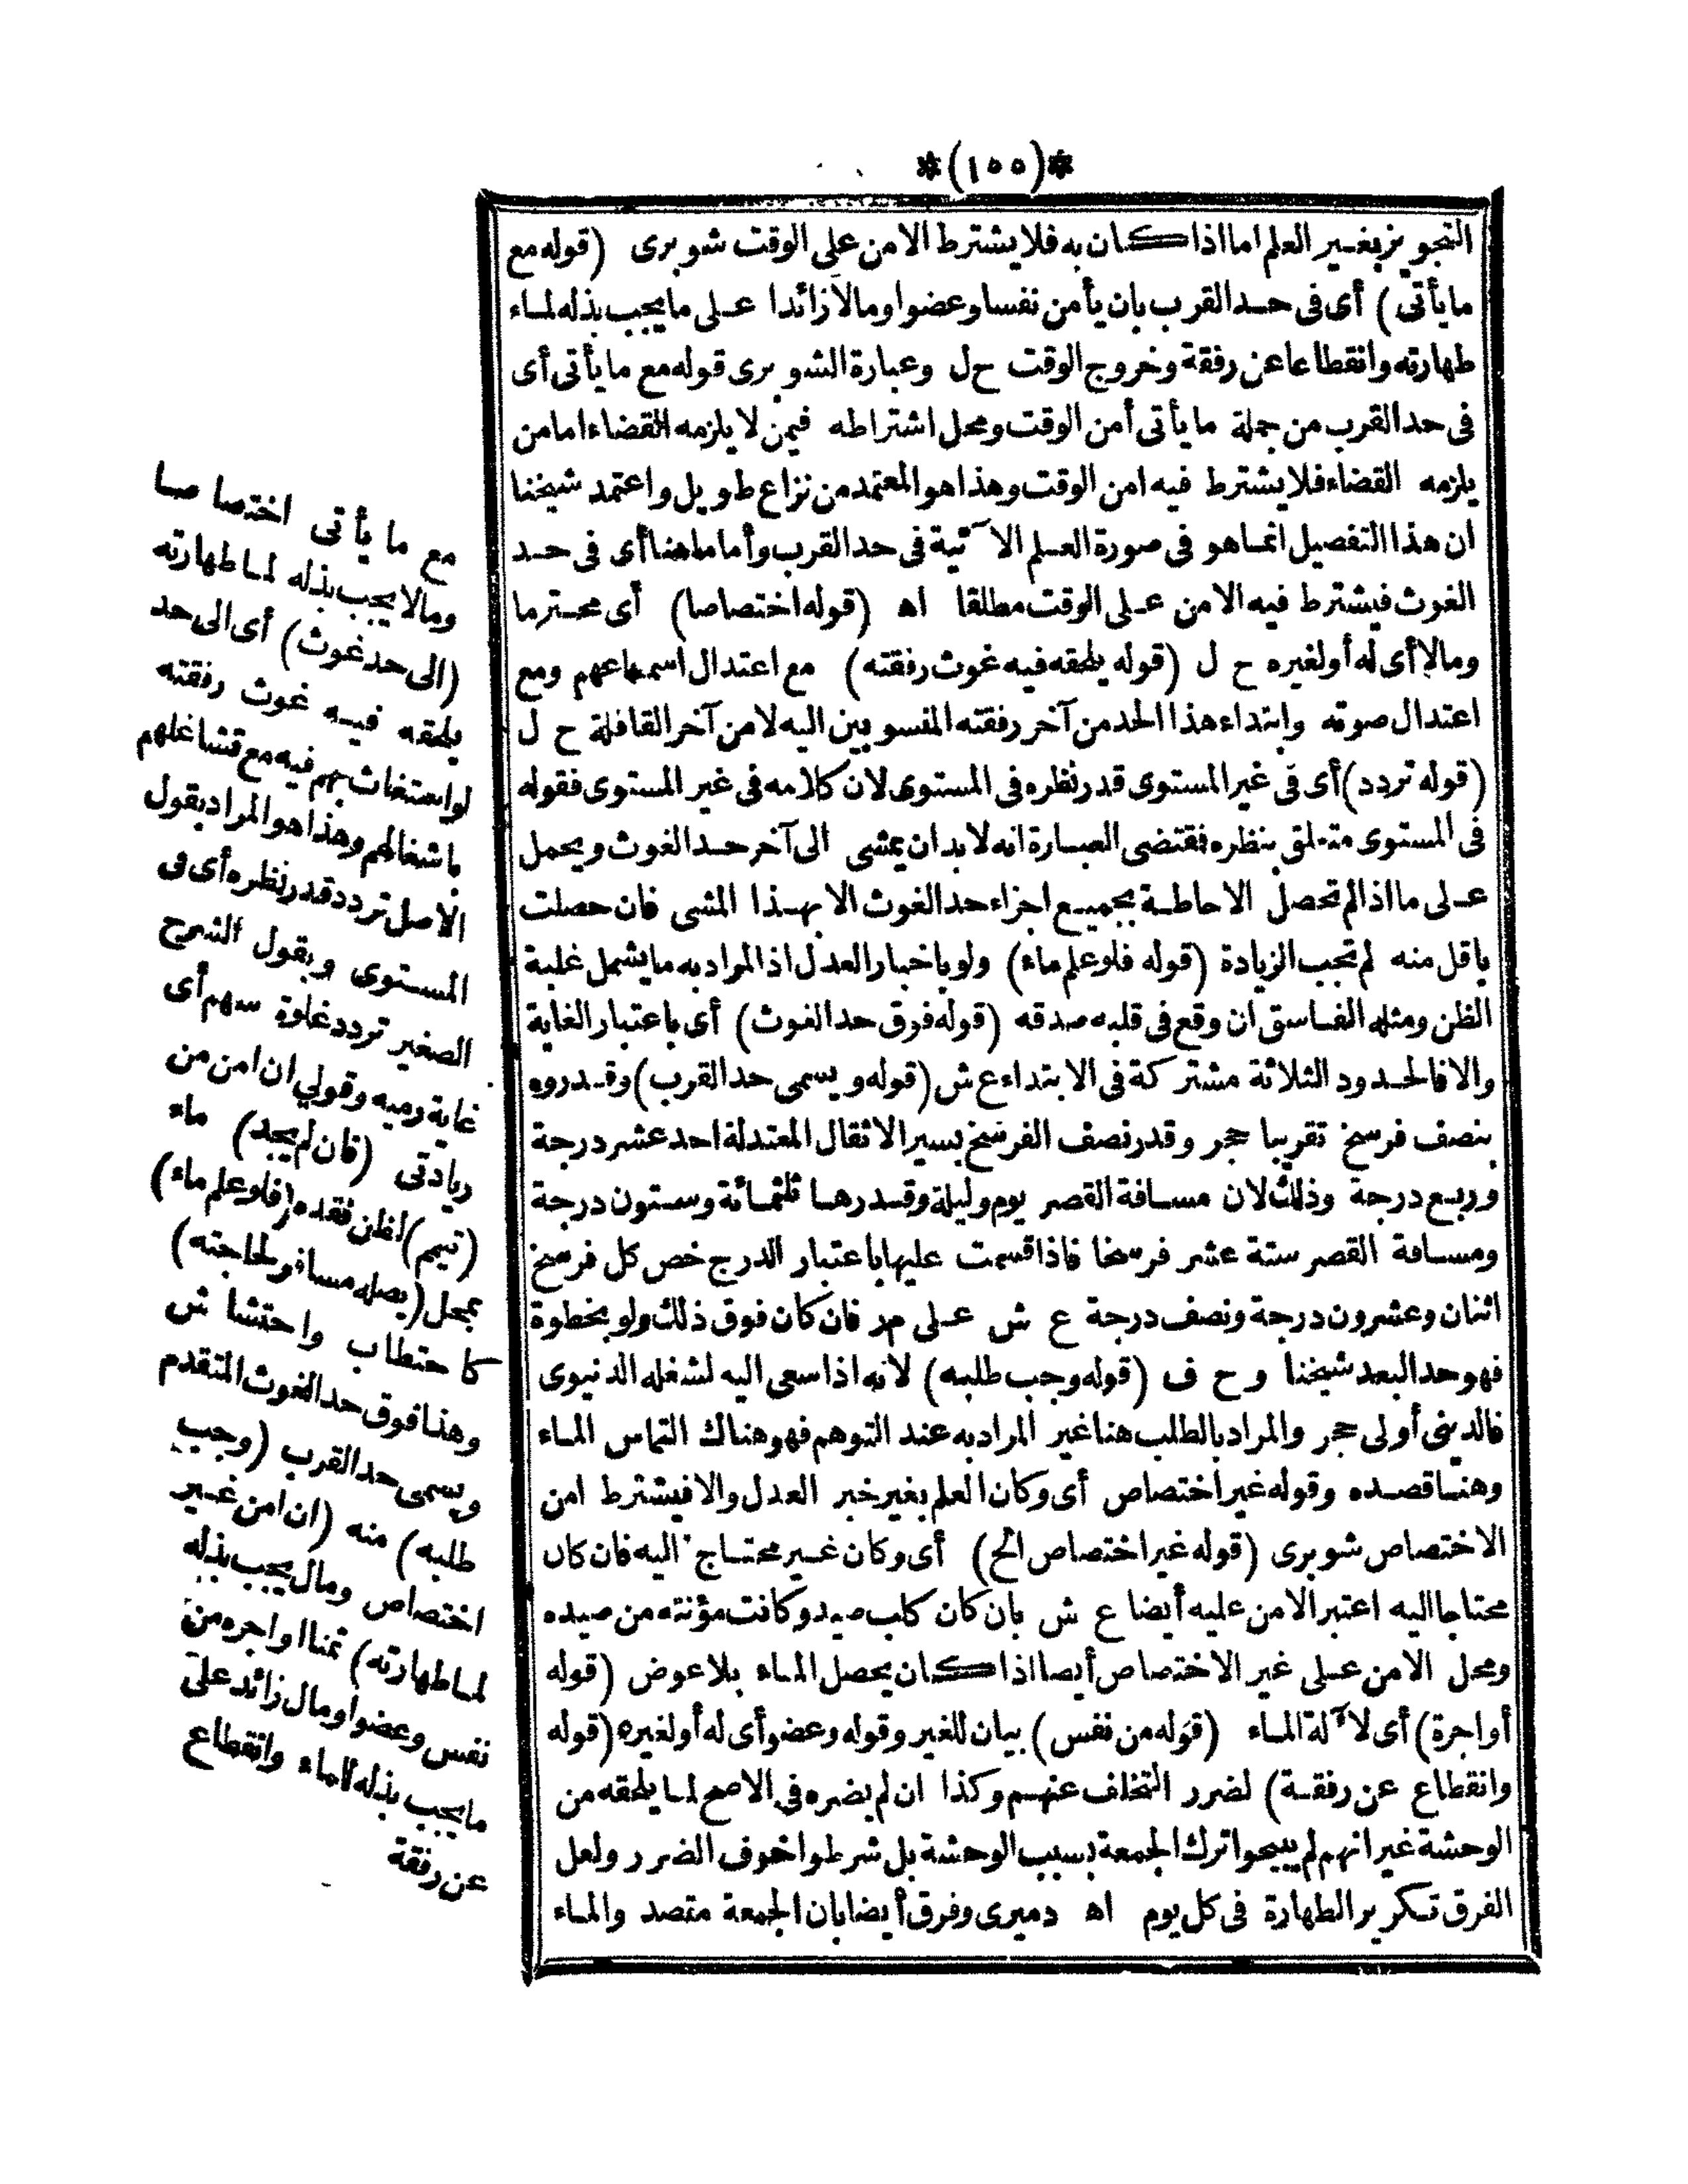 *(١٥٥)*
التجويز بغير العلم اما اذا كان به فلا يشترط الامن على الوقت شوبرى (قوله مع
ما يأتى) أى فى حد القرب بان يأمن نفسا وعضوا ومالا زائدا على ما يجب بذله لماء
طهارته وانقطاعا عن رفقة وخروج الوقت ح ل وعبارة الشوبرى قوله مع ما يأتى أى
فى حد القرب من جملة ما يأتى أمن الوقت ومحل اشتراطه فيمن لا يلزمه القضاء اما من
يلزمه القضاء فلا يشترط فيه امن الوقت وهذا هو المعتمد من نزاع طويل واعتمد شيخنا
ان هذا التفصيل انما هو فى صورة العلم الآتية فى حد القرب وأما ما هنا أى فى حد
الغوث فيشترط فيه الامن على الوقت مطلقا اه (قوله اختصاصا) أى محترما
ومالا أى له أو لغيره ح ل (قوله يلحقه فيه غوث رفقته) مع اعتدال اسماعهم ومع
اعتدال صوته وابتداء هذا الحد من آخر رفقته المنسوبين اليه لا من آخر القافلة ح ل
(قوله تردد) أى فى غير المستوى قدر نظره فى المستوى لان كلامه فى غير المستوى فقوله
فى المستوى متعلق بنظره فقتضى العبارة انه لا بد ان يمشى الى آخر حد الغوث ويحمل
على ما اذا لم تحصل الاحاطة بجميع اجزاء حد الغوث الا بهذا المشى فان حصلت
باقل منه لم تجب الزيادة (قوله فلو علم ماء) ولو باخبار العدل اذ المراد به ما يشمل غلبة
الظن ومثله الفاسق ان وقع فى قلبه صدقه (قوله فوق حد الغوث) أى باعتبار الغاية
والا فالحدود الثلاثة مشتركة فى الابتداء ع ش (قوله ويسمى حد القرب) وقدروه
بنصف فرسخ تقريبا حجر وقدر نصف الفرسخ بسير الاثقال المعتدلة احد عشر درجة
وربع درجة وذلك لان مسافة القصر يوم وليلة وقدرها ثلثمائة وستون درجة
ومسافة القصر ستة عشر فرسخا فاذا قسمت عليها باعتبار الدرج خص كل فرسخ
اثنان وعشرون درجة ونصف درجة ع ش على م ر فان كان فوق ذلك ولو بخطوة
فهو حد البعد شيخنا و ح ف (قوله وجب طلبه) لانه اذا سعى اليه لشغله الدنيوى
فالدينى أولى حجر والمراد بالطلب هنا غير المراد به عند التوهم فهو هناك التماس الماء
وهنا قصده وقوله غير اختصاص أى وكان العلم بغير خبر العدل والا فيشترط امن
الاختصاص شوبرى (قوله غير اختصاص الخ) أى وكان غير محتاج اليه فان كان
محتاجا اليه اعتبر الامن عليه أيضا ع ش بان كان كلب صيد وكانت مؤنته من صيده
ومحل الامن على غير الاختصاص أيضا اذا كان يحصل الماء بلا عوض (قوله
أو اجرة) أى لآلة الماء (قوله من نفس) بيان للغير وقوله وعضو أى له أو لغيره (قوله
وانقطاع عن رفقة) لضرر التخلف عنهم وكذا ان لم يضره فى الاصح لما يلحقه من
الوحشة غير انهم لم يبيحوا ترك الجمعة بسبب الوحشة بل شرطوا خوف الضرر ولعل
الفرق تكرير الطهارة فى كل يوم اه دميرى وفرق أيضا بان الجمعة مقصد والماء
مع ما يأتى اختصاصا
ومالا يجب بذله لما طهارته
(الى حد غوث) أى الى حد
يلحقه فيه غوث رفقته
لو استغاث بهم فيه مع تشاغلهم
باشغالهم وهذا هو المراد بقول
الاصل تردد قدر نظره أى فى
المستوى وبقول الشرح
الصغير تردد غلوة سهم أى
غاية رميه وقولى ان امن من
زيادتى (فان لم يجد) ماء
(تيمم) لظن فقده (فلو علم ماء)
بمحل (يصله مسافر لحاجته)
كاحتطاب واحتشاش
وهذا فوق حد الغوث المتقدم
ويسمى حد القرب (وجب
طلبه) منه (ان امن غير
اختصاص ومال يجب بذله
لما طهارته) ثمنا او اجره من
نفس وعضو ومال زائد على
ما يجب بذله للماء وانقطاع
عن رفقة